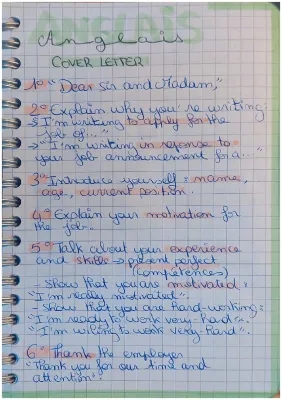 ANGLAIS
Anglais
COVER LETTER
1° "Dear Sir and Madam,"
2° Explain why you're writing:
→ "I'm writing to apply for the
job of..."
→ "I'm writing in reponse to
your job announcement for a..."
3° Introduce yourself = name,
age, current position.
4° Explain your motivation for
the job..
5° Talk about your experience
and skills → present perfect
(compétences)
. Show that you are motivated:
"I'm really motivated".
. Show that you are hard-working:
"I'm ready to work very-hard".
"I'm wiling to work very-hard".
6° Thank the employer
"Thank you for our time and
attention".